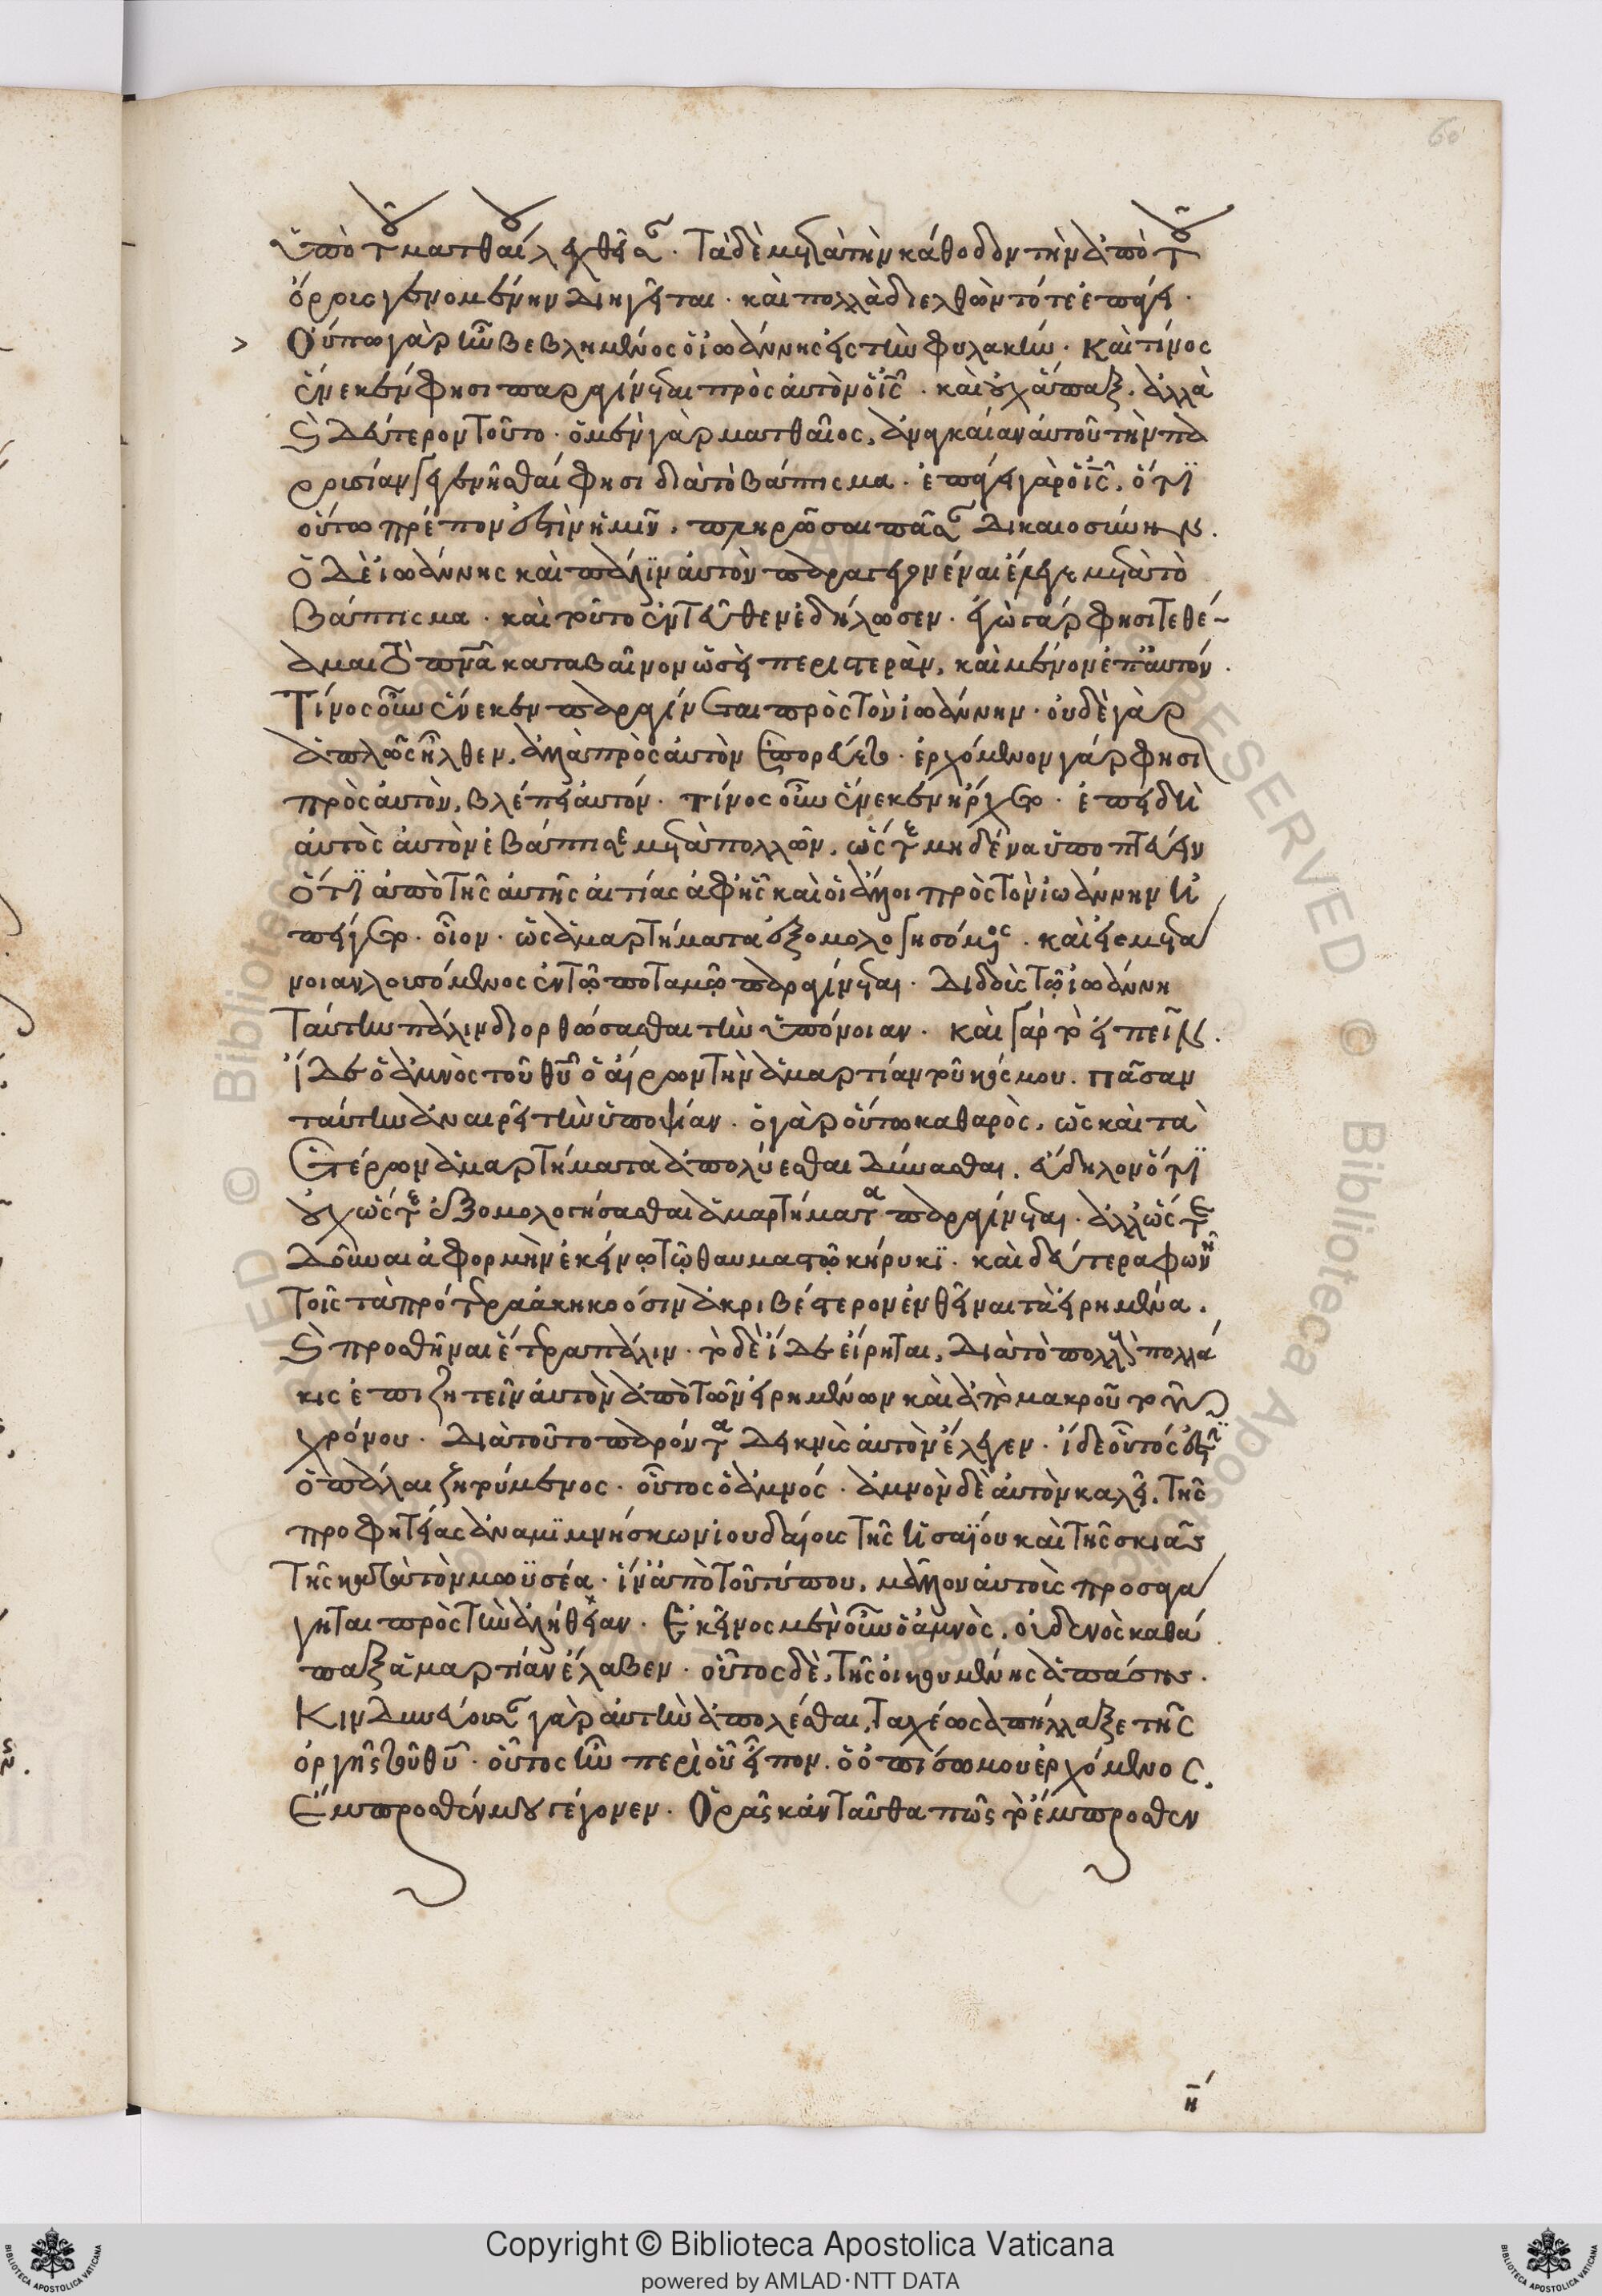 60
ὑπὸ τοῦ ματθαίου λεχθεῖσι. Τὰ δὲ μετὰ τὴν κάθοδον τὴν ἀπὸ τοῦ
ὄρους γενομένην διηγεῖται. καὶ πολλὰ διελθὼν τότε ἐπάγει.
> Οὔπω γὰρ ἦν βεβλημένος ὁ ἰωάννης εἰς τὴν φυλακήν. Καὶ τίνος
ἕνεκέν φησι παραγίνεται πρὸς αὐτὸν ὁ ἰς. καὶ οὐχ ἅπαξ. ἀλλὰ
καὶ δεύτερον τοῦτο. ὁ μὲν γὰρ ματθαῖος, ἀναγκαίαν αὐτοῦ τὴν πα
ρουσίαν γεγενῆσθαί φησι διὰ τὸ βάπτισμα. ἐπάγει γὰρ ὁ ἰς, ὅτι
οὕτω πρέπον ἐστὶν ἡμῖν, πληρῶσαι πᾶσαν δικαιοσύνην.
ὁ δὲ ἰωάννης καὶ πάλιν αὐτὸν παραγεγονέναι ἔλεγε μετὰ τὸ
βάπτισμα. καὶ τοῦτο ἐντεῦθεν ἐδήλωσεν. ἐγὼ γάρ φησι τεθέ-
αμαι τὸ πνᾶ καταβαῖνον ὡσεὶ περιστερὰν, καὶ μένον ἐπ' αὐτόν.
Τίνος οὖν ἕνεκεν παραγίνεται πρὸς τὸν ἰωάννην. οὐδὲ γὰρ
ἁπλῶς ἦλθεν, ἀλλὰ πρὸς αὐτὸν ἐπορεύετο. ἐρχόμενον γάρ φησι
πρὸς αὐτὸν, βλέπει αὐτόν. τίνος οὖν ἕνεκεν ἤρχετο. ἐπειδὴ
αὐτὸς αὐτὸν ἐβάπτισε μετὰ πολλῶν, ὥστε μηδένα ὑποπτεύειν
ὅτι ἀπὸ τῆς αὐτῆς αἰτίας ἀφ' ἧς καὶ οἱ ἄλλοι πρὸς τὸν ἰωάννην ἠ
πείγετο. οἷον. ὡς ἁμαρτήματα ἐξομολογησόμενος. καὶ εἰς μετά
νοιαν λουσόμενος ἐν τῷ ποταμῷ παραγίνεται. διδοὺς τῷ ἰωάννη
ταύτην πάλιν διορθώσασθαι τὴν ὑπόνοιαν. καὶ γὰρ τὸ εἰπεῖν.
ἴδε ὁ ἀμνὸς τοῦ θῦ ὁ αἴρων τὴν ἁμαρτίαν τοῦ κόσμου. πᾶσαν
ταύτην ἀναιρεῖ τὴν ὑποψίαν. ὁ γὰρ οὕτω καθαρὸς, ὡς καὶ τὰ
ἑτέρων ἁμαρτήματα ἀπολύεσθαι δύνασθαι, εὔδηλον ὅτι
οὐχ ὥστε ἐξομολογήσασθαι ἁμαρτήματα παραγίνεται. ἀλλ' ὥστε
δοῦναι ἀφορμὴν ἐκείνῳ τῷ θαυμαστῷ κήρυκι. καὶ δευτέρα φωνῇ
τοῖς τὰ πρότερα ἀκηκοόσιν ἀκριβέστερον ἐνθεῖναι τὰ εἰρημένα.
καὶ προσθῆναι ἕτερα πάλιν. τὸ δὲ ἴδε εἴρηται, διὰ τὸ πολλοὺς πολλά
κις ἐπιζητεῖν αὐτὸν ἀπὸ τῶν εἰρημένων καὶ ἀπὸ μακροῦ τοῦ
χρόνου. διὰ τοῦτο παρόντα δεικνὺς αὐτὸν ἔλεγεν. ἴδε οὗτός ἐστιν
ὁ πάλαι ζητούμενος. οὗτος ὁ ἀμνός. ἀμνὸν δὲ αὐτὸν καλεῖ, τῆς
προφητείας ἀναμιμνήσκων ἰουδαίοις τῆς ἠσαΐου καὶ τῆς σκιᾶς
τῆς κατὰ τὸν μωϋσέα. ἵν' ἀπὸ τοῦ τύπου, μᾶλλον αὐτοὺς προσαγά
γηται πρὸς τὴν ἀλήθειαν. Ἐκεῖνος μὲν οὖν ὁ ἀμνὸς, οὐδενὸς καθά
παξ ἁμαρτίαν ἔλαβεν. οὗτος δὲ, τῆς οἰκουμένης ἁπάσης.
Κινδυνεύουσαν γὰρ αὐτὴν ἀπολέσθαι, ταχέως ἀπήλλαξε τῆς
ὀργῆς τοῦ θῦ. οὗτος ἦν περὶ οὗ εἶπον. ὁ ὀπίσω μου ἐρχόμενος,
Ἔμπροσθέν μου γέγονεν. Ὁρᾶς κἀνταῦθα πῶς τὸ ἔμπροσθεν
η
Copyright © Biblioteca Apostolica Vaticana
powered by AMLAD·NTT DATA